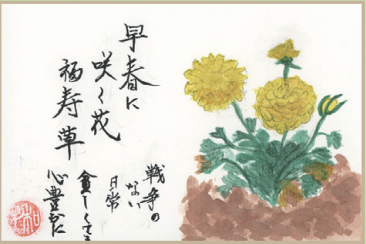 早春に
咲く花
福寿草
戦争の
ない
日常
貧しくても
心豊かに